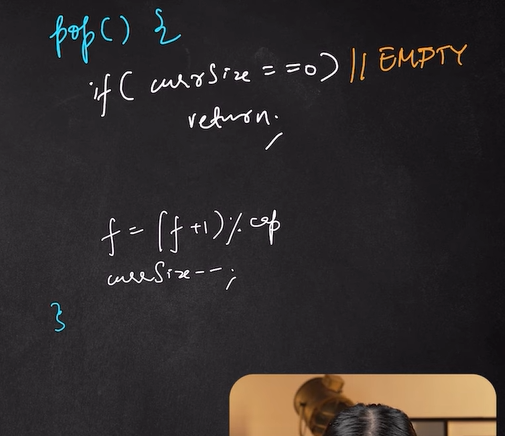 pop() {
if( currSize == 0) // EMPTY
return;
f = (f+1) % cap
currSize--;
}